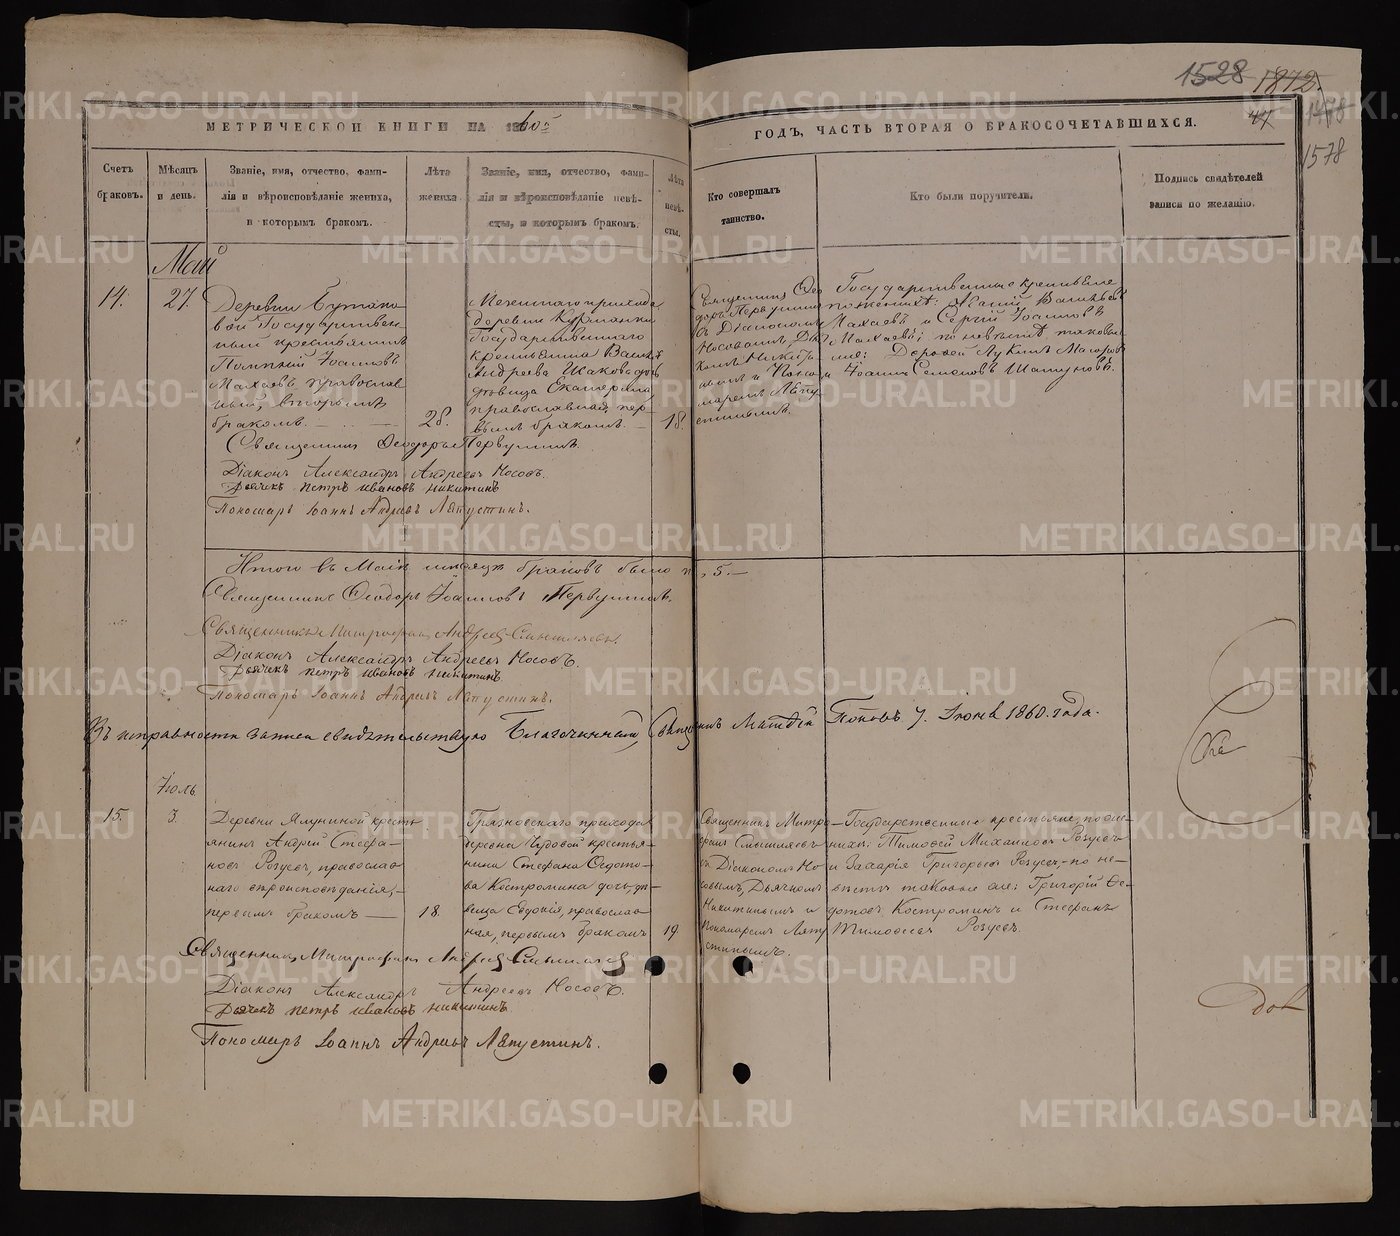 1528 1872.
47 1478
1578
МЕТРИЧЕСКОЙ КНИГИ НА 1860й
ГОДЪ, ЧАСТЬ ВТОРАЯ О БРАКОСОЧЕТАВШИХСЯ.
Счетъ браковъ.
Мѣсяцъ и день.
Званіе, имя, отчество, фами-
лія и вѣроисповѣданіе жениха,
и которымъ бракомъ.
Лѣта жениха.
Званіе, имя, отчество, фами-
лія и вѣроисповѣданіе невѣ-
сты, и которымъ бракомъ.
Лѣта невѣ-
сты.
Кто совершалъ
таинство.
Кто были поручители.
Подпись свидѣтелей
записи по желанію.
Май
14. 27.
Деревни
вой Государствен-
ный крестьянинъ
Іоанновъ
Махаевъ, православ-
ный, вторымъ
бракомъ.
28.
прихода
деревни Курманки
Государственнаго
крестьянина Василія
Андреева дочь
дѣвица Екатерина,
православная, пер-
вымъ бракомъ.
18.
Священникъ Ѳео-
доръ Первушинъ
съ Діакономъ
Носовымъ, Дья-
комъ Никити-
нымъ и Поно-
маремъ Ляпу-
стинымъ.
Государственные крестьяне
Васильевъ
Махаевъ и Сергій Іоанновъ
Махаевъ; по невѣстѣ таковые
же: Дороѳей Лукинъ
и Іоаннъ Семеновъ
Священникъ Ѳеодоръ Первушинъ.
Діаконъ Александръ Андреевъ Носовъ.
Дьячекъ Петръ Ивановъ Никитинъ
Пономарь Іоаннъ Андреевъ Ляпустинъ.
Итого въ Маѣ мѣсяцѣ браковъ было 5.
Священникъ Ѳеодоръ Іоанновъ Первушинъ.
Священникъ Митрофанъ Андреевъ Смышляевъ.
Діаконъ Александръ Андреевъ Носовъ.
Дьячекъ Петръ Ивановъ Никитинъ
Пономарь Іоаннъ Андреевъ Ляпустинъ.
Въ исправности записи свидѣтельствую Благочинный, Священникъ Матѳій Поповъ 7. Іюня 1860. года.
Іюль.
15. 3.
Деревни Ялуниной кресть-
янинъ Андрей Стефа-
новъ Розуевъ, православ-
наго вѣроисповѣданія,
первымъ бракомъ
18.
Грязновскаго прихода де-
ревни Чудовой крестья-
нина Стефана Ѳедото-
ва Костромина дочь дѣ-
вица Евдокія, православ-
ная, первымъ бракомъ
19.
Священникъ Митро-
фанъ Смышляевъ
съ Діакономъ Но-
совымъ, Дьячкомъ
Никитинымъ и
Пономаремъ Ляпу-
стинымъ.
Государственные крестьяне, по же-
нихѣ: Тимоѳей Михайловъ Розуевъ
и Захарія Григорьевъ Розуевъ; по не-
вѣстѣ таковые же: Григорій Ѳе-
дотовъ Костроминъ и Стефанъ
Тимоѳеевъ Розуевъ.
Священникъ Митрофанъ Андреевъ Смышляевъ
Діаконъ Александръ Андреевъ Носовъ.
Дьячекъ Петръ Ивановъ Никитинъ
Пономарь Іоаннъ Андреевъ Ляпустинъ.
METRIKI.GASO-URAL.RU